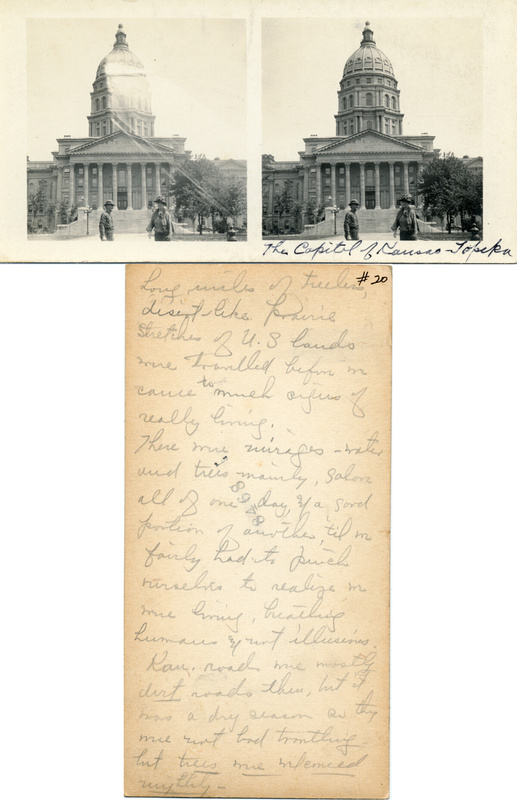 The Capitol of Kansas - Topeka
#20
Long miles of treeless,
desert-like prairie
stretches of U.S lands
were travelled before we
came to much signs of
really living.
There were mirages - water
and trees mainly,
all of one day, & a good
portion of another, 'til we
fairly had to pinch
ourselves to realize we
were living, breathing
humans & not illusions.
Kan. roads were mostly
dirt roads then, but it
was a dry season so they
were not bad travelling -
but trees were welcomed
mightily -